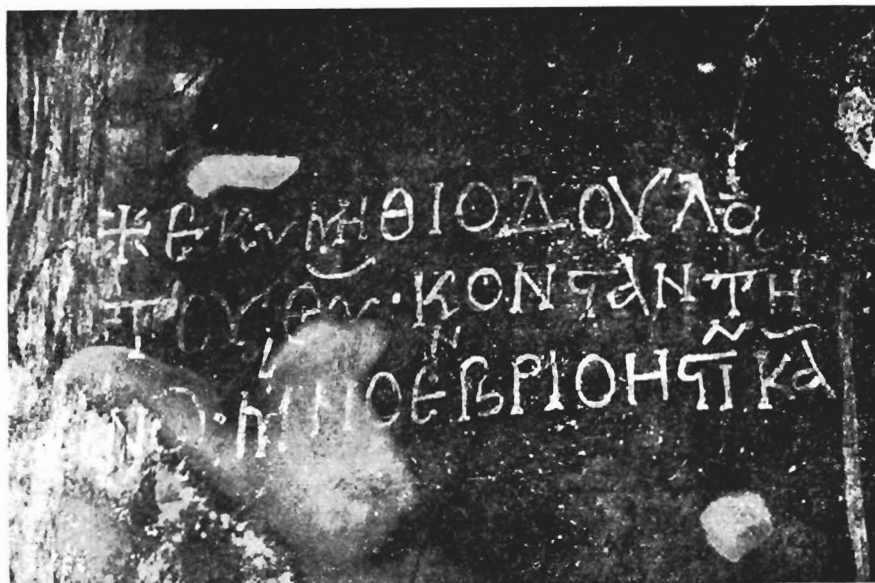 ✚ ΕΚΥΜΗΘΙ Ο ΔΟΥΛΟ
ΤΟΥ ΘΥ · ΚΟΝΣΤΑΝΤΗ
ΝΟ · ΜΙΝΟΕΒΡΙΟ Η ΣΤ ΚΑ